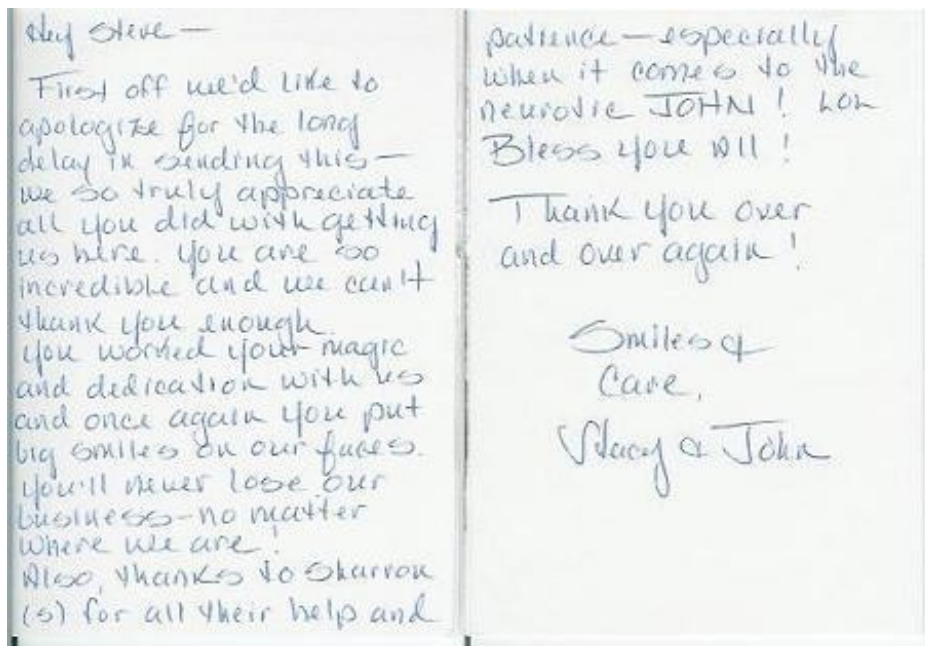 Hey Steve —
First off we'd like to
apologize for the long
delay in sending this —
we so truly appreciate
all you did with getting
us here. You are so
incredible and we can't
thank you enough.
You worked your magic
and dedication with us
and once again you put
big smiles on our faces.
You'll never lose our
business - no matter
where we are!
Also, thanks to Sharron
(s) for all their help and
patience — especially
when it comes to the
neurotic JOHN! LOL
Bless you All!
Thank you over
and over again!
Smiles &
Care,
Stacy & John